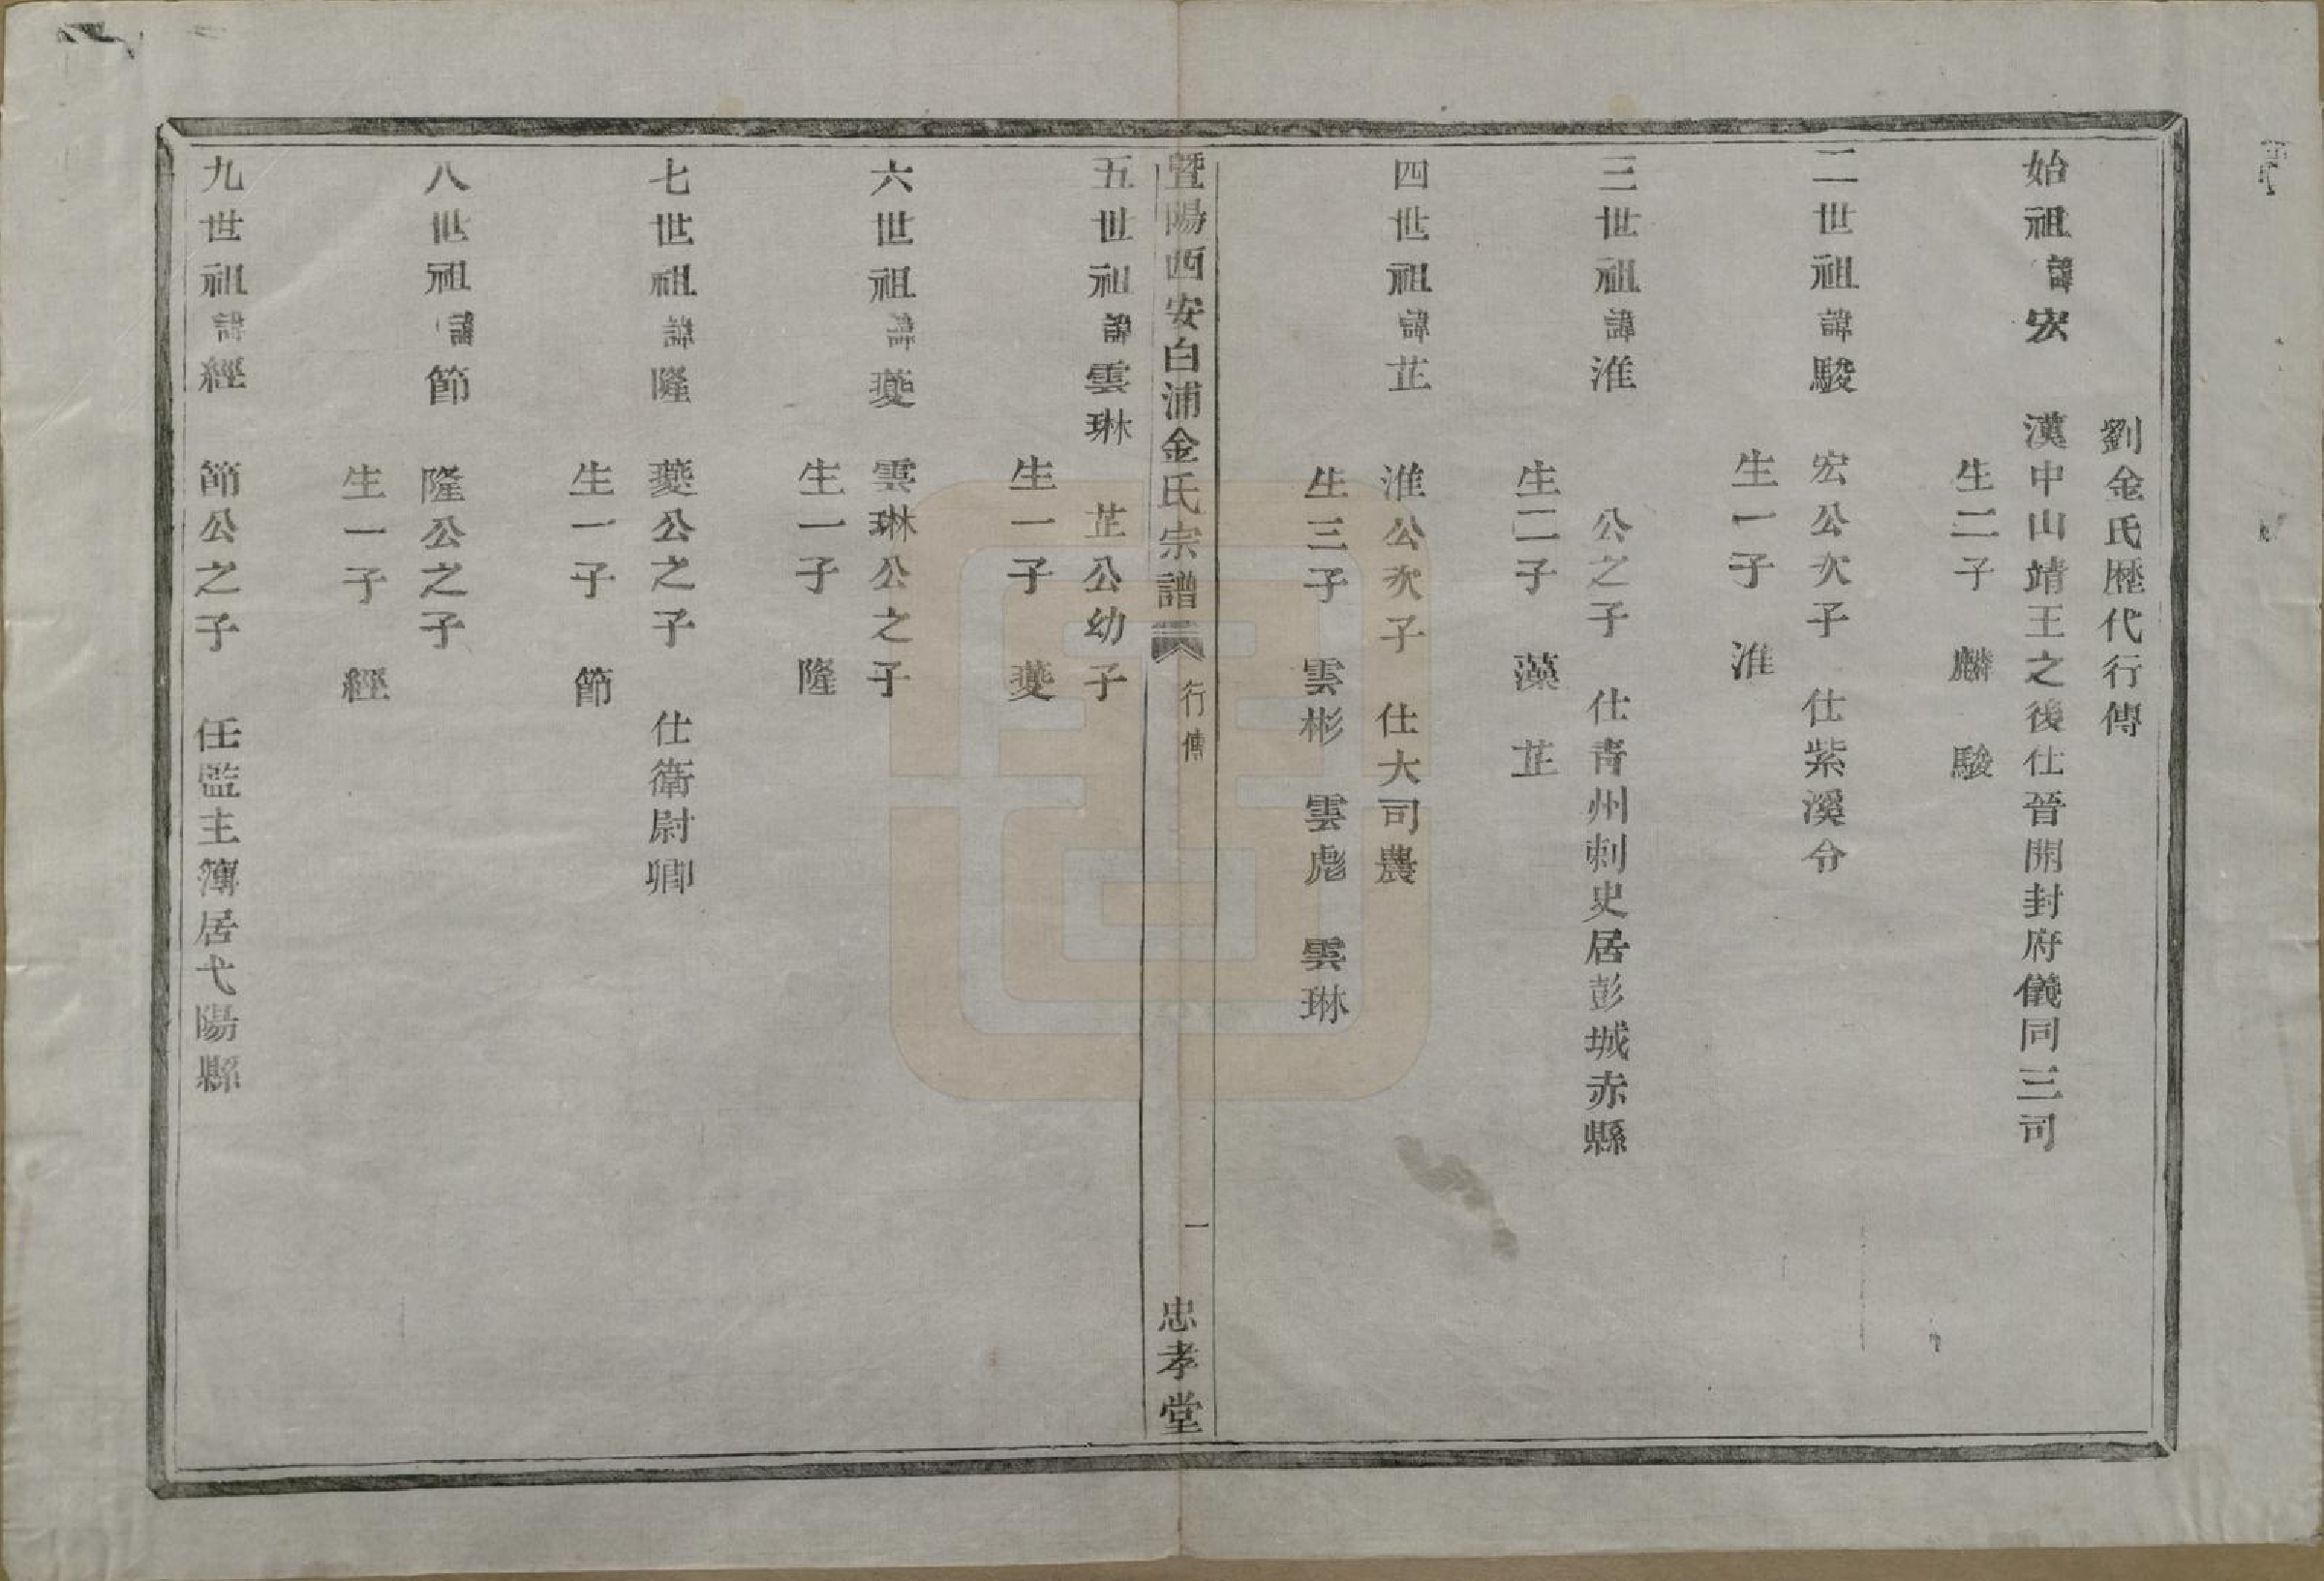 劉金氏歷代行傳
始祖諱宏　漢中山靖王之後仕晉開封府儀同三司
生二子　麟　駿
二世祖諱駿　宏公次子　仕紫溪令
生一子　淮
三世祖諱淮　公之子　仕青州刺史居彭城赤縣
生二子　藻　芷
四世祖諱芷　淮公次子　仕大司農
生三子　雲彬　雲彪　雲琳
暨陽西安白浦金氏宗譜　行傳　一　忠孝堂
五世祖諱雲琳　芷公幼子
生一子　夔
六世祖諱夔　雲琳公之子
生一子　隆
七世祖諱隆　夔公之子　仕衛尉卿
生一子　節
八世祖諱節　隆公之子
生一子　經
九世祖諱經　節公之子　任監主簿居弋陽縣